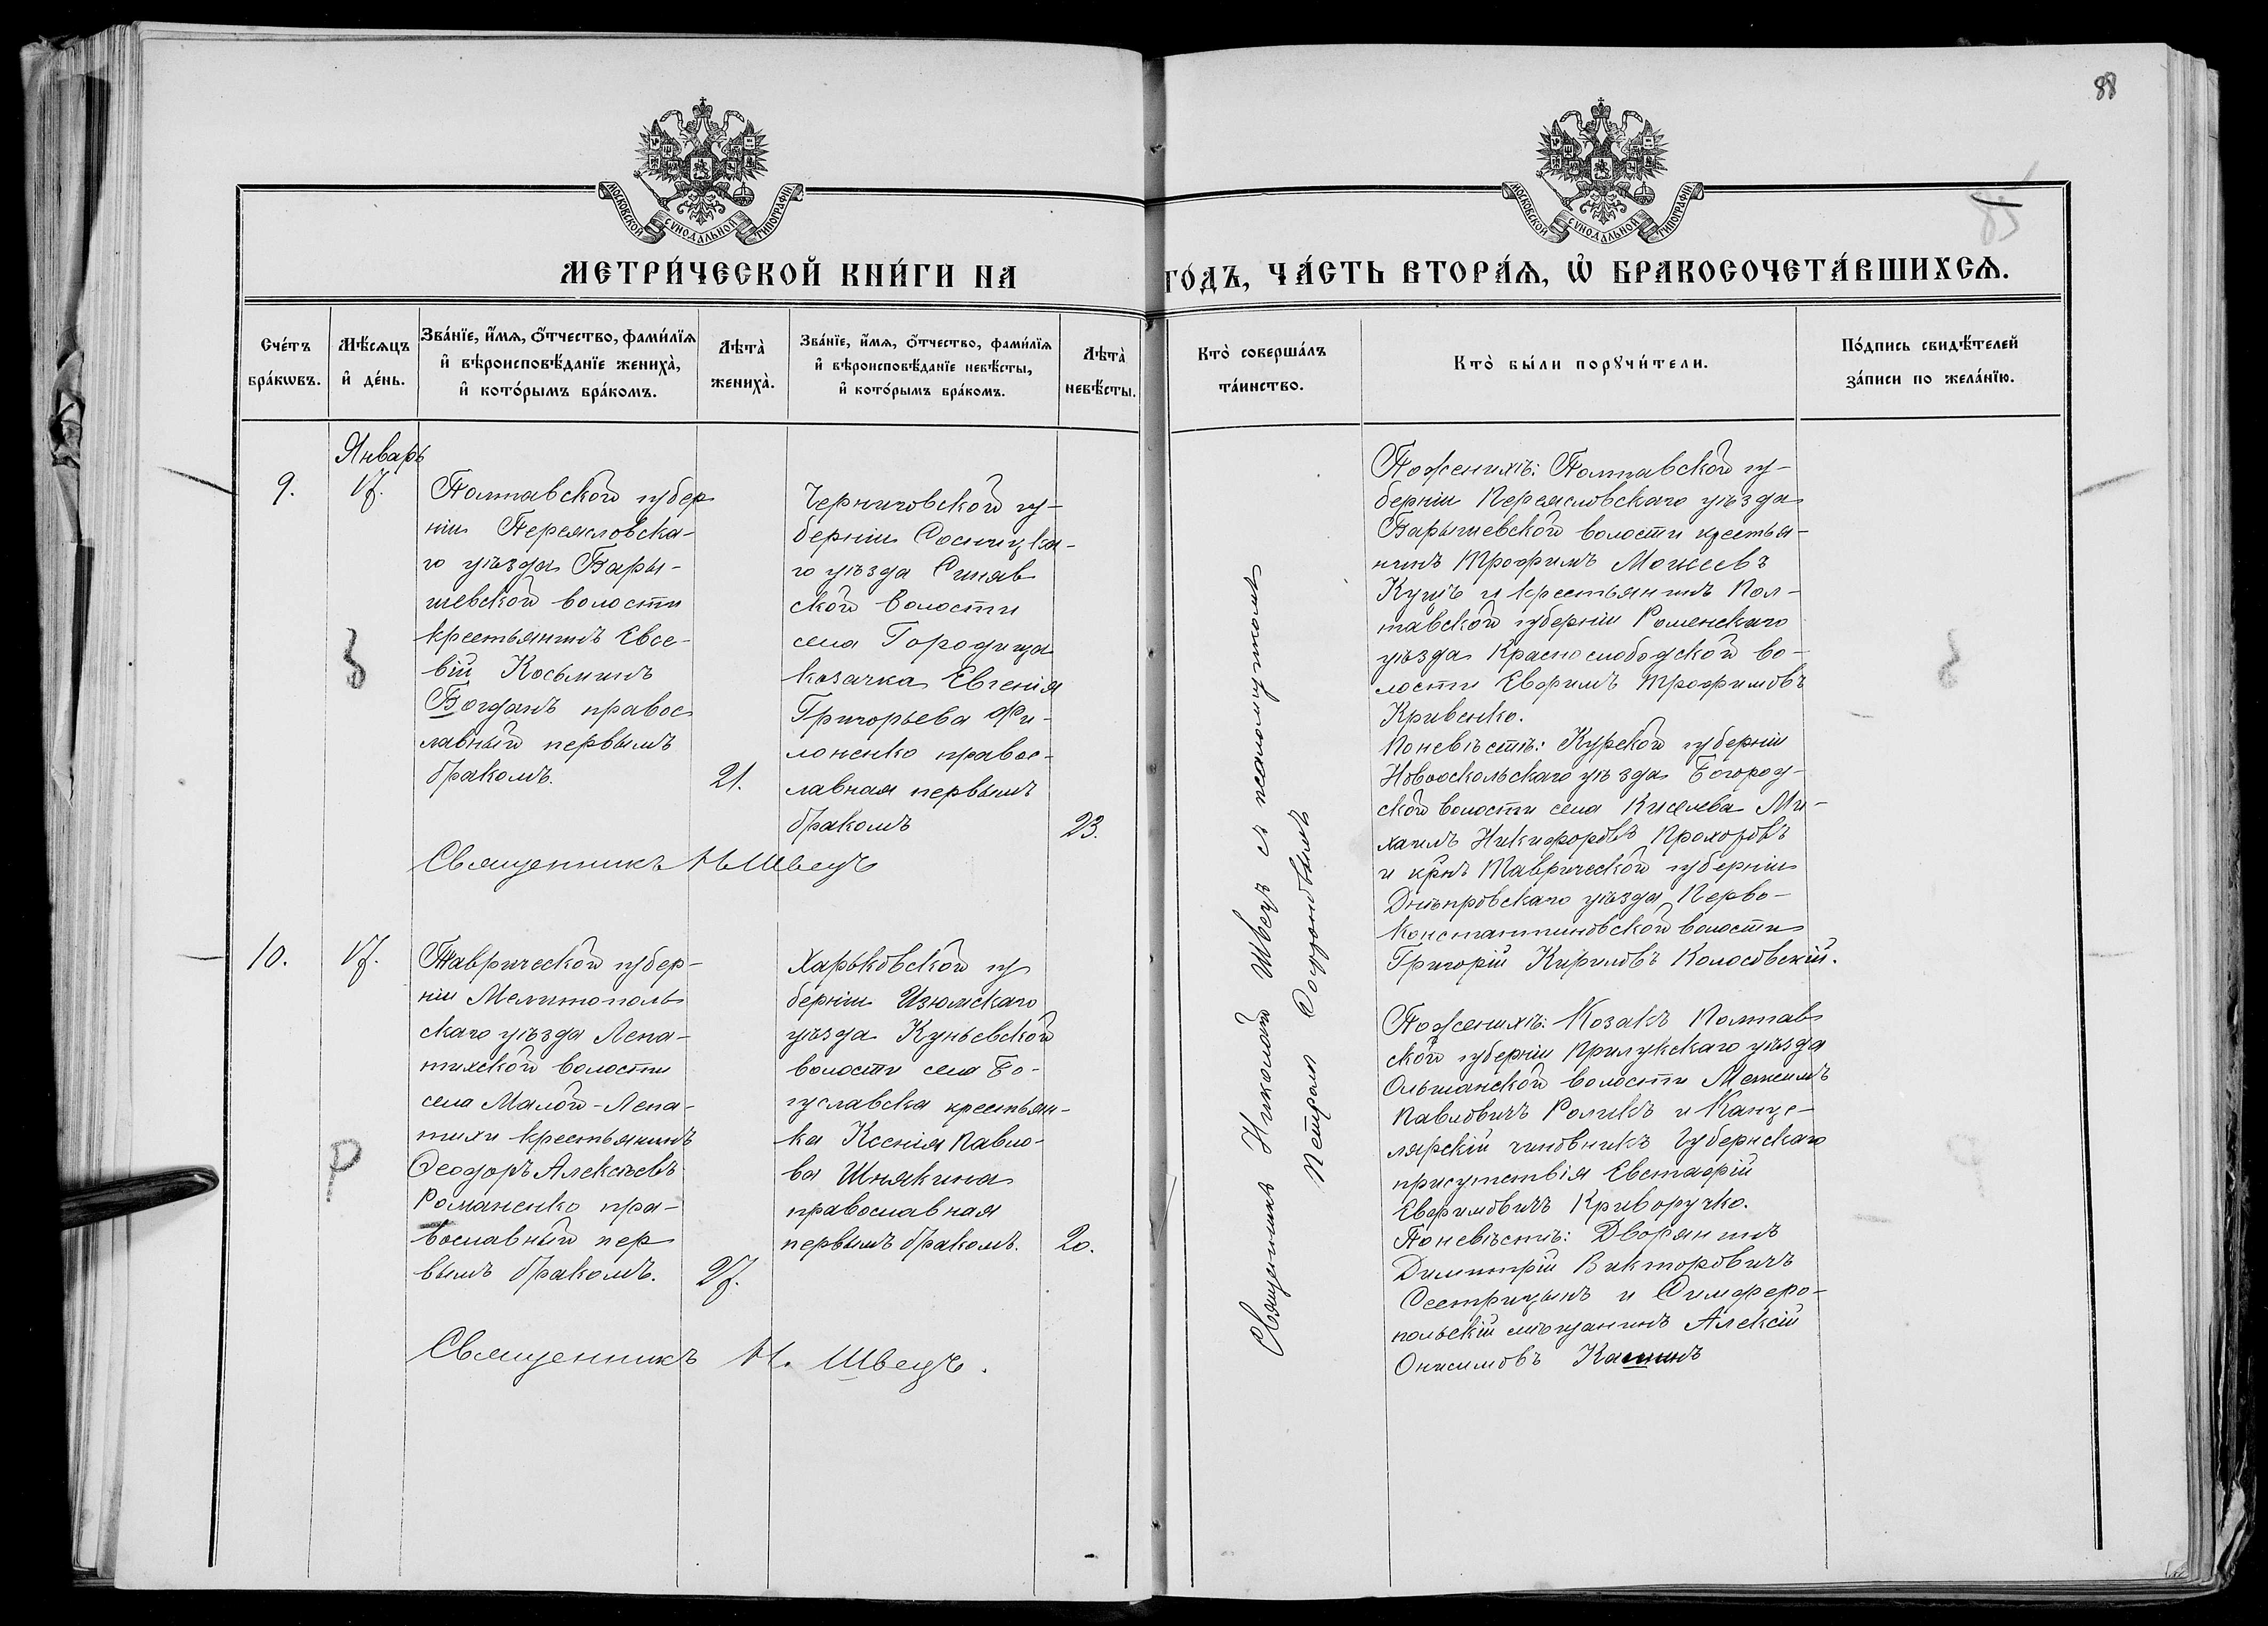 88
85
МОСКОВСКОЙ СѴНОДАЛЬНОЙ ТИПОГРАФІИ
МОСКОВСКОЙ СѴНОДАЛЬНОЙ ТИПОГРАФІИ
МЕТРИ́ЧЕСКОЙ КНИ́ГИ НА
ГО́ДЪ, ЧА́СТЬ ВТОРА́Ѧ, Ѡ҆ БРАКОСОЧЕТА́ВШИХСѦ.
Сче́тъ
бра́кѡвъ.
Мѣ́сѧцъ
и҆ де́нь.
Зва́нїе, и҆́мѧ, ѻ҆́тчество, фами́лїѧ
и҆ вѣроисповѣ́данїе жениха̀,
и҆ кото́рымъ бра́комъ.
Лѣта̀
жениха̀.
Зва́нїе, и҆́мѧ, ѻ҆́тчество, фами́лїѧ
и҆ вѣроисповѣ́данїе невѣ́сты,
и҆ кото́рымъ бра́комъ.
Лѣта̀
невѣ́сты.
Кто̀ соверша́лъ
та́инство.
Кто̀ бы́ли порꙋчи́тели.
По́дпись свидѣ́телей
за́писи по жела́нїю.
9.
Январь
17.
Полтавской губер
ніи Переясловска-
го уѣзда Бары-
шевской волости
крестьянинъ Евсе-
вій Косьминъ
Богданъ правос
лавный первымъ
бракомъ.
21.
Черниговской гу-
берніи Сосницка-
го уѣзда Синяв
ской волости
села Городища
козачка Евгенія
Григорьева Фи-
лоненко правос-
лавная первымъ
бракомъ
23.
Священникъ Н Швецъ
Священникъ Николай Швецъ с псаломщикомъ
Петромъ
Поженихѣ: Полтавской гу-
берніи Переясловскаго уѣзда
Барышевской волости крестья-
нинъ Трофимъ Моисеевъ
Куцъ и крестьянинъ Пол-
тавской губерніи Роменскаго
уѣзда Краснослободской во-
лости Евфимъ Трофимовъ
Кривенко.
Поневѣстѣ: Курской губерніи
Новооскольскаго уѣзда Богород-
ской волости села Киселева Ми-
хаилъ Никифоровъ Прохоровъ
и крнъ Таврической губерніи
Днѣпровскаго уѣзда Перво-
константиновской волости
Григорій Кириловъ Колосовскій.
10.
17.
Таврической губер-
ніи Мелитополь
скаго уѣзда Лепа-
тихской волости
села Малой-Лепа-
тихи крестьянинъ
Ѳеодоръ Алексѣевъ
Романенко пра-
вославный пер
вымъ бракомъ.
27.
Харьковской гу
берніи Изюмскаго
уѣзда Куньевской
волости села Бо-
гуславска крестьян-
ка Ксенія Павло-
ва Шнякина
православная
первымъ бракомъ.
20.
Священникъ Н. Швецъ.
Поженихѣ: Козакъ Полтав
ской губерніи Прилукскаго уѣзда
Ольшанской волости Максимъ
Павловичъ Роликъ и Канце-
лярскій чиновникъ Губернскаго
присутствія Евстафій
Евфимовичъ Криворучко.
Поневѣстѣ: Дворянинъ
Димитрій Викторовичъ
Сестрицынъ и Симферо-
польскій мѣщанинъ Алексій
Онисимовъ Кашинъ